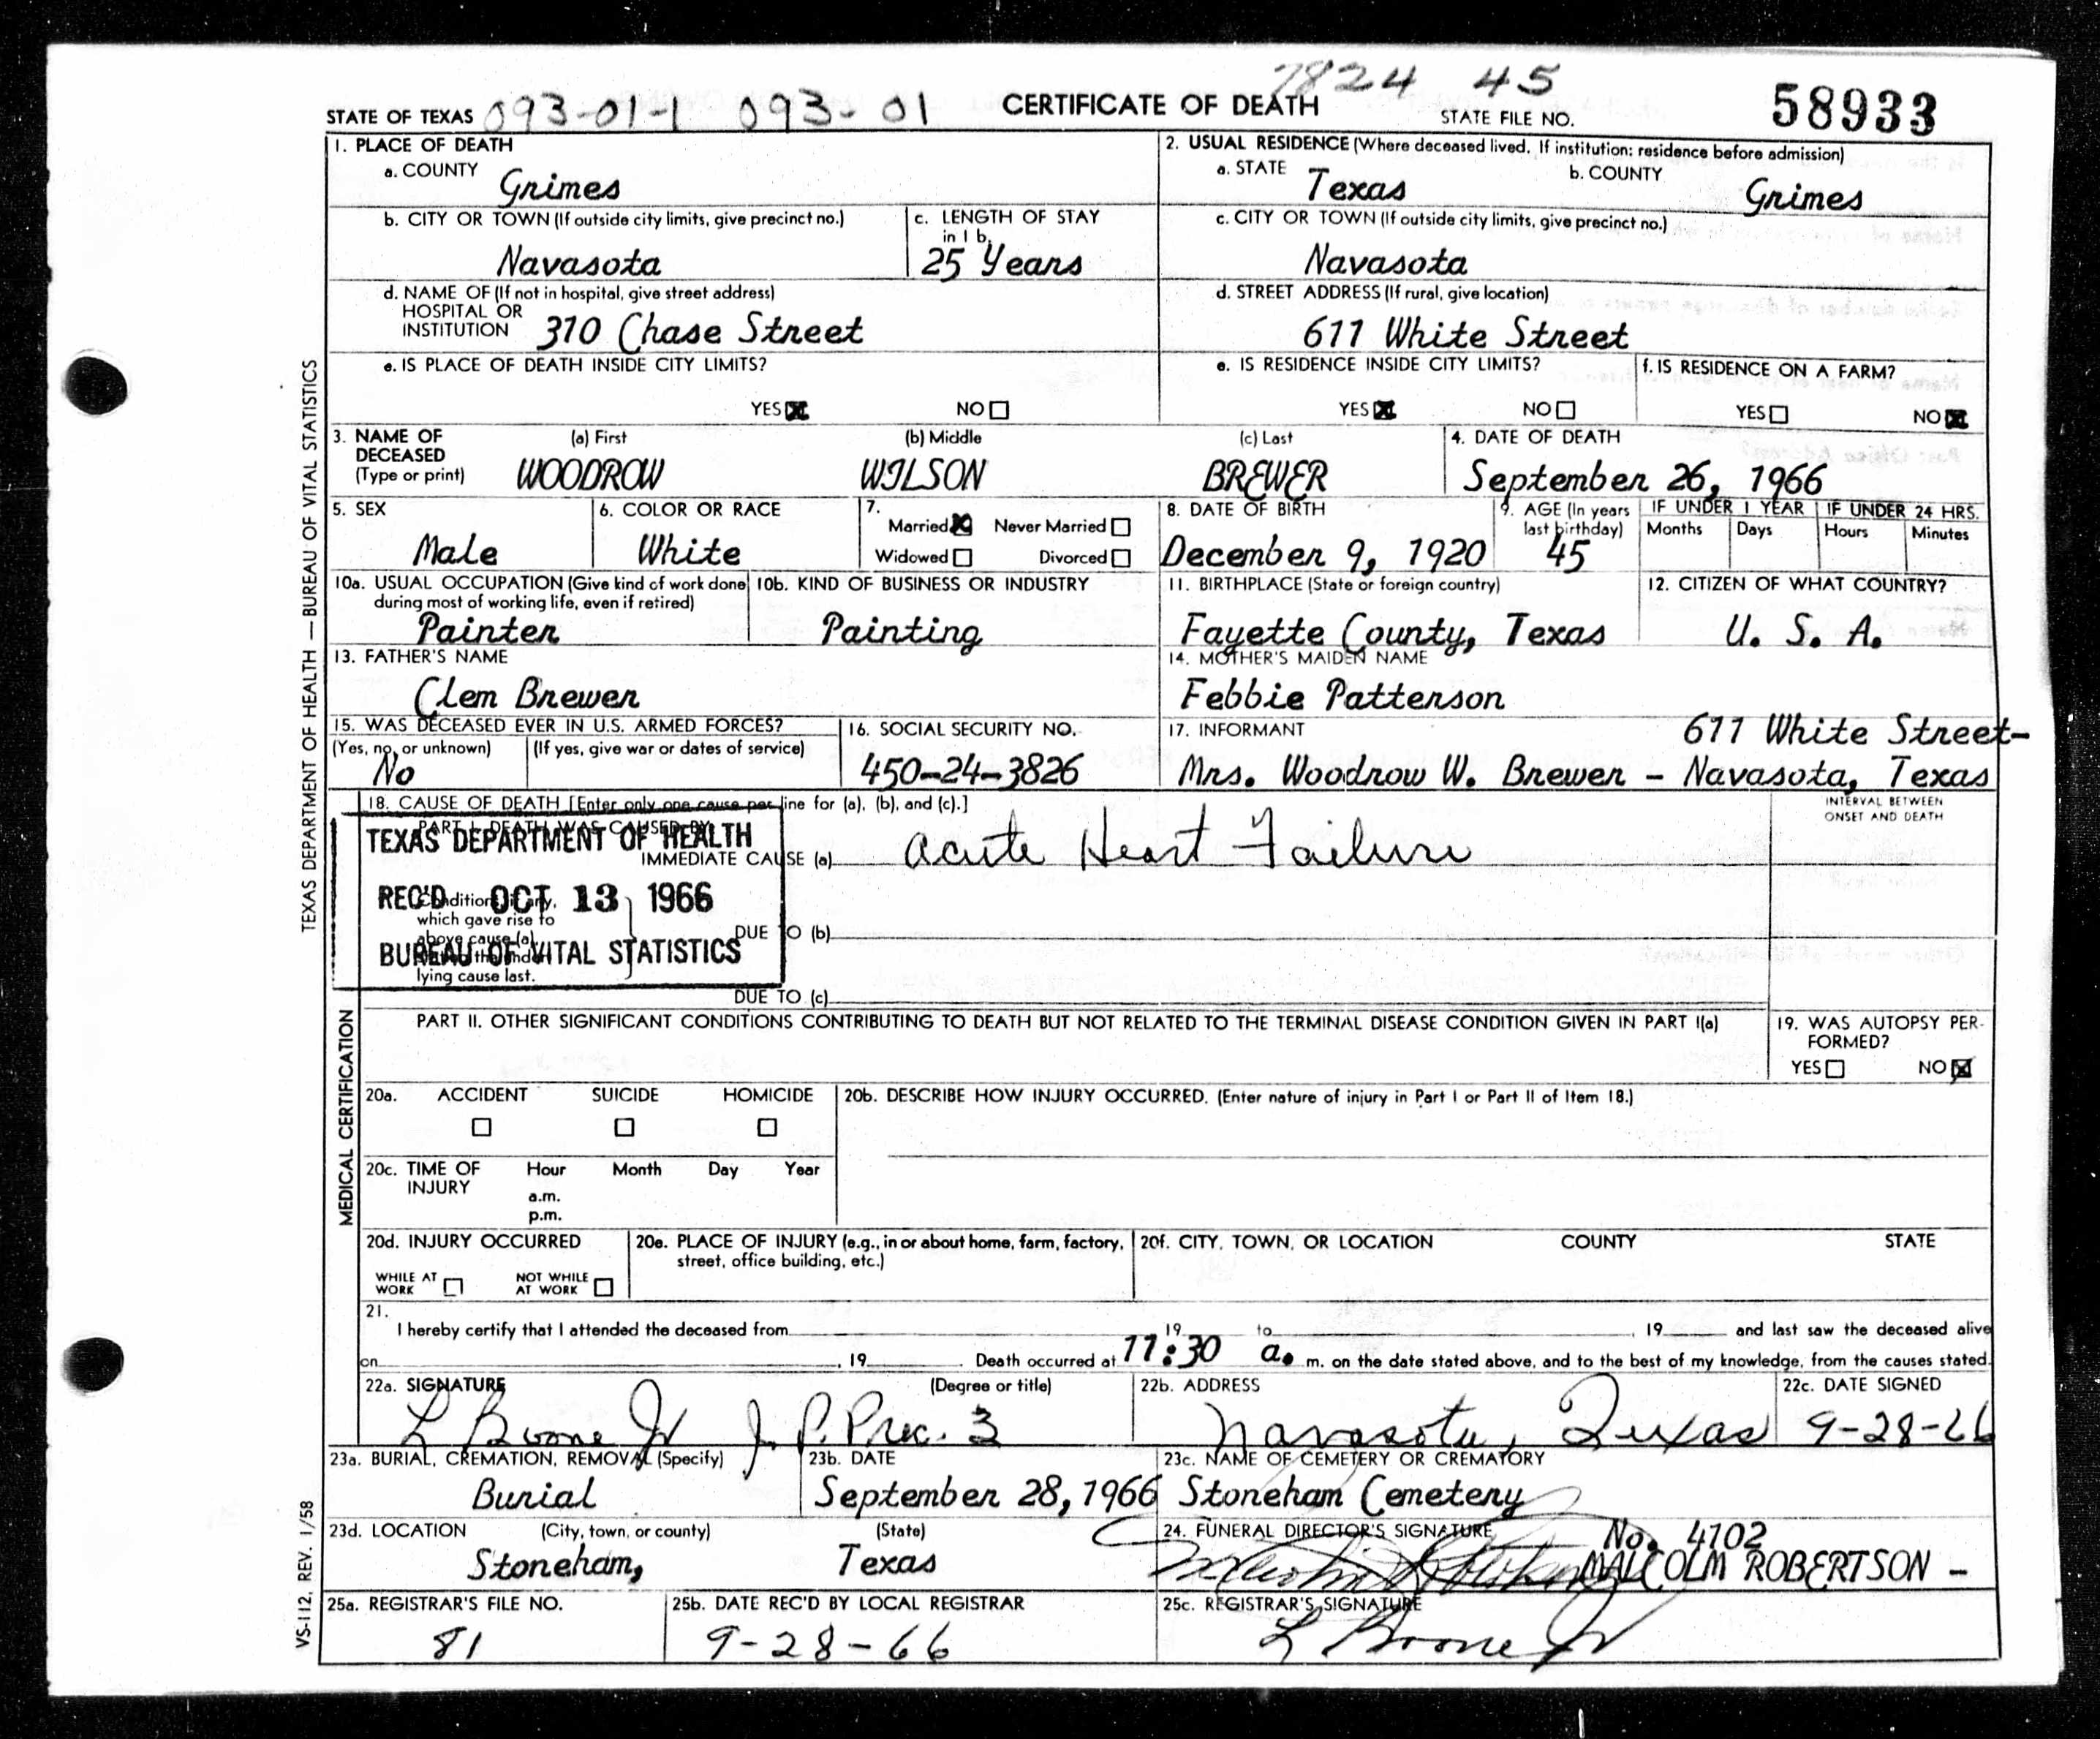 7824 45
STATE OF TEXAS 093-01-1 093-01 CERTIFICATE OF DEATH STATE FILE NO. 58933
1. PLACE OF DEATH
a. COUNTY Grimes
2. USUAL RESIDENCE (Where deceased lived. If institution: residence before admission)
a. STATE Texas b. COUNTY Grimes
b. CITY OR TOWN (If outside city limits, give precinct no.) Navasota
c. LENGTH OF STAY in 1 b. 25 Years
c. CITY OR TOWN (If outside city limits, give precinct no.) Navasota
d. NAME OF (If not in hospital, give street address)
HOSPITAL OR
INSTITUTION 310 Chase Street
d. STREET ADDRESS (If rural, give location)
611 White Street
e. IS PLACE OF DEATH INSIDE CITY LIMITS?
YES NO
e. IS RESIDENCE INSIDE CITY LIMITS?
YES NO
f. IS RESIDENCE ON A FARM?
YES NO
3. NAME OF DECEASED (Type or print)
(a) First WOODROW
(b) Middle WILSON
(c) Last BREWER
4. DATE OF DEATH
September 26, 1966
5. SEX
Male
6. COLOR OR RACE
White
7.
Married Never Married
Widowed Divorced
8. DATE OF BIRTH
December 9, 1920
9. AGE (In years last birthday)
45
IF UNDER 1 YEAR
Months Days
IF UNDER 24 HRS.
Hours Minutes
10a. USUAL OCCUPATION (Give kind of work done
during most of working life, even if retired)
Painter
10b. KIND OF BUSINESS OR INDUSTRY
Painting
11. BIRTHPLACE (State or foreign country)
Fayette County, Texas
12. CITIZEN OF WHAT COUNTRY?
U. S. A.
13. FATHER'S NAME
Clem Brewer
14. MOTHER'S MAIDEN NAME
Febbie Patterson
15. WAS DECEASED EVER IN U.S. ARMED FORCES?
(Yes, no, or unknown) (If yes, give war or dates of service)
No
16. SOCIAL SECURITY NO.
450-24-3826
17. INFORMANT 611 White Street-
Mrs. Woodrow W. Brewer - Navasota, Texas
18. CAUSE OF DEATH [Enter only one cause per line for (a), (b), and (c).]
PART I. DEATH WAS CAUSED BY:
IMMEDIATE CAUSE (a) Acute Heart Failure
INTERVAL BETWEEN
ONSET AND DEATH
Conditions, if any,
which gave rise to
above cause (a)
stating the under-
lying cause last.
DUE TO (b)
DUE TO (c)
TEXAS DEPARTMENT OF HEALTH
REC'D OCT 13 1966
BUREAU OF VITAL STATISTICS
PART II. OTHER SIGNIFICANT CONDITIONS CONTRIBUTING TO DEATH BUT NOT RELATED TO THE TERMINAL DISEASE CONDITION GIVEN IN PART I(a)
19. WAS AUTOPSY PER-
FORMED?
YES NO
20a. ACCIDENT SUICIDE HOMICIDE
20b. DESCRIBE HOW INJURY OCCURRED. (Enter nature of injury in Part I or Part II of Item 18.)
20c. TIME OF INJURY Hour Month Day Year
a.m.
p.m.
20d. INJURY OCCURRED
WHILE AT WORK NOT WHILE AT WORK
20e. PLACE OF INJURY (e.g., in or about home, farm, factory,
street, office building, etc.)
20f. CITY, TOWN, OR LOCATION COUNTY STATE
21.
I hereby certify that I attended the deceased from 19 to , 19 and last saw the deceased alive
on , 19 . Death occurred at 11:30 a. m. on the date stated above, and to the best of my knowledge, from the causes stated.
22a. SIGNATURE (Degree or title)
L Boone Jr J. P. Prec. 3
22b. ADDRESS
Navasota, Texas
22c. DATE SIGNED
9-28-66
23a. BURIAL, CREMATION, REMOVAL (Specify)
Burial
23b. DATE
September 28, 1966
23c. NAME OF CEMETERY OR CREMATORY
Stoneham Cemetery
23d. LOCATION (City, town, or county) (State)
Stoneham, Texas
24. FUNERAL DIRECTOR'S SIGNATURE No. 4102
Malcolm Robertson MALCOLM ROBERTSON -
25a. REGISTRAR'S FILE NO.
81
25b. DATE REC'D BY LOCAL REGISTRAR
9-28-66
25c. REGISTRAR'S SIGNATURE
L Boone Jr
TEXAS DEPARTMENT OF HEALTH — BUREAU OF VITAL STATISTICS
MEDICAL CERTIFICATION
VS-112, REV. 1/58